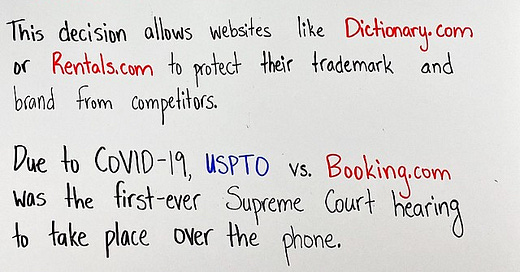 This decision allows websites like Dictionary.com
or Rentals.com to protect their trademark and
brand from competitors.
Due to CoVID-19, USPTO vs. Booking.com
was the first-ever Supreme Court hearing
to take place over the phone.